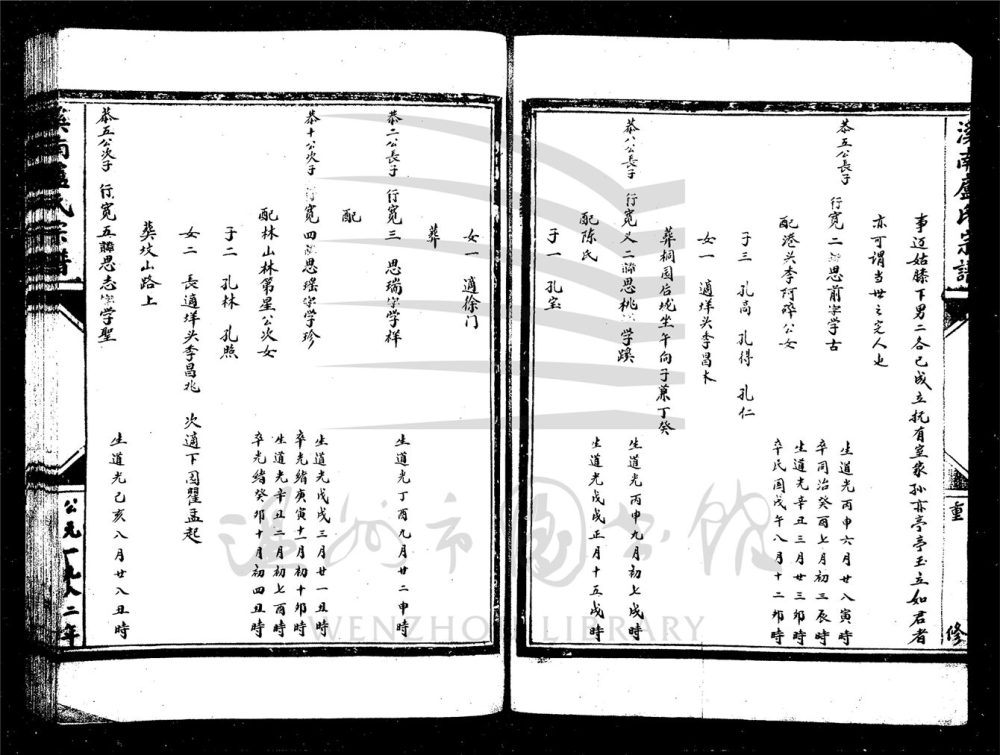 溪南盧氏宗譜
重修
事邁姑膝下男二各已成立抚有室家孙亦亭亭玉立如君者
亦可谓当世之完人也
恭五公長子 行寬二 思前字学古
生道光丙申六月廿八寅時
卒同治癸酉七月初三辰時
配港头李阿碎公女
生道光辛丑三月廿三卯時
卒民国戊午八月十二卯時
子三 孔高 孔得 孔仁
女一 適垟头李昌木
葬桐园后垅坐午向子兼丁癸
恭八公長子 行寬又二 諱思桃 学蹊
生道光丙申九月初七戌時
配陈氏
生道光戊戌正月十五戌時
子一 孔宝
女一 適徐门
葬
恭二公長子 行寬三 思瑞字学样
生道光丁酉九月廿二申時
配
恭十公次子 行寬四 諱思瑶字学珍
生道光戊戌三月廿一丑時
卒光緒庚寅十一月初十卯時
配林山林第星公次女
生道光辛丑二月初七酉時
卒光緒癸卯十月初四丑時
子二 孔林 孔照
女二 長適垟头李昌兆 次適下园瞿孟起
葬坟山路上
恭五公次子 行寬五 諱思志字学聖
生道光己亥八月廿八丑時
溪南盧氏宗譜
公元一九八二年
温州市图书馆
WENZHOU LIBRARY